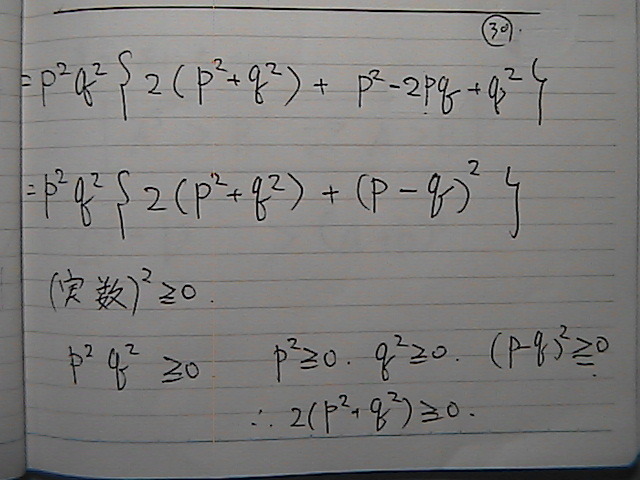 30
= p²q² { 2 (p² + q²) + p² - 2pq + q² }
= p²q² { 2 (p² + q²) + (p - q)² }
(実数)² ≧ 0.
p² q² ≧ 0 p² ≧ 0. q² ≧ 0. (p-q)² ≧ 0
∴ 2(p² + q²) ≧ 0.